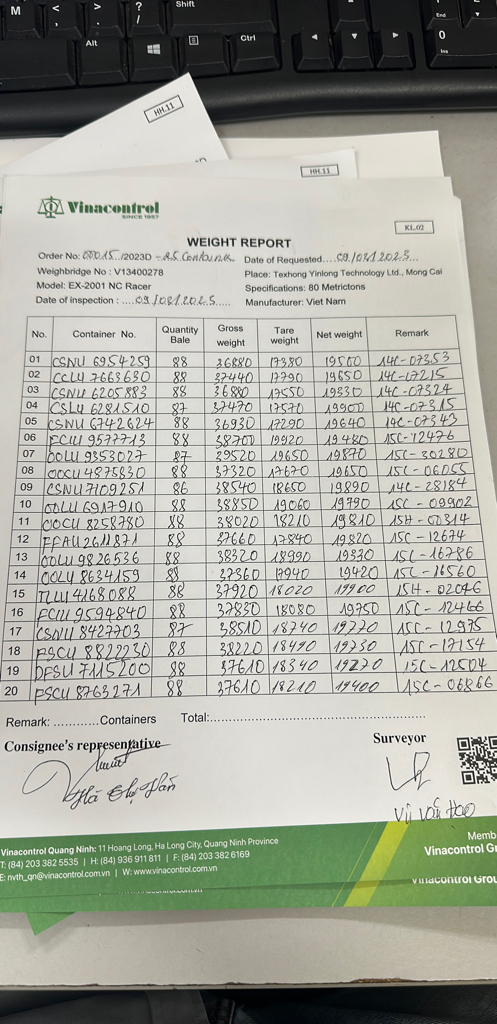 M < > ? / Shift
Alt Ctrl End 0 Ins
HH.11
HH.11
Vinacontrol
SINCE 1957
KL.02
WEIGHT REPORT
Order No: 00015./2023D - 25 Container Date of Requested....09/021 2023..
Weighbridge No : V13400278 Place: Texhong Yinlong Technology Ltd., Mong Cai
Model: EX-2001 NC Racer Specifications: 80 Metrictons
Date of inspection : ....09/021 2023..... Manufacturer: Viet Nam
No. Container No. Quantity Bale Gross weight Tare weight Net weight Remark
01 CSNU 6954259 88 36880 17380 19500 14C-07353
02 CCLU 7663630 88 37440 17790 19650 14C-07215
03 CSNU 6205883 88 36880 17550 19330 14C-07324
04 CSLU 6281510 87 37470 17570 19900 14C-07315
05 CSNU 6742624 88 36930 17290 19640 14C-07343
06 FCIU 9577713 88 38700 19920 19480 15C-12476
07 OOLU 9353027 87 39520 19650 19870 15C-30280
08 OOCU 4875830 88 37320 17670 19650 15C-06055
09 CSNU 7109251 86 38540 18650 19890 14C-28184
10 OOLU 6917910 88 38850 19060 19790 15C-09902
11 OOCU 8258780 88 38020 18210 19810 15H-00314
12 FFAU 2611871 88 37660 17840 19820 15C-12674
13 OOLU 9826536 88 38320 18990 19330 15C-16786
14 OOLU 8634159 88 37360 17940 19420 15C-16560
15 TLLU 4168088 88 37920 18020 19900 15H-02046
16 FCIU 9594840 88 37830 18080 19750 15C-12466
17 CSNU 8427703 87 38510 18740 19770 15C-12975
18 FSCU 8822230 88 38220 18490 19730 15C-17154
19 DFSU 7115200 88 37610 18340 19270 15C-12504
20 FSCU 8763271 88 37610 18210 19400 15C-06866
Remark: ............Containers Total:.......................................................
Consignee's representative Surveyor
Vũ Văn
Vinacontrol Quang Ninh: 11 Hoang Long, Ha Long City, Quang Ninh Province
T: (84) 203 382 5535 | H: (84) 936 911 811 | F: (84) 203 382 6169
E: nvth_qn@vinacontrol.com.vn | W: www.vinacontrol.com.vn
Memb
Vinacontrol Gr
Vinacontrol Grou